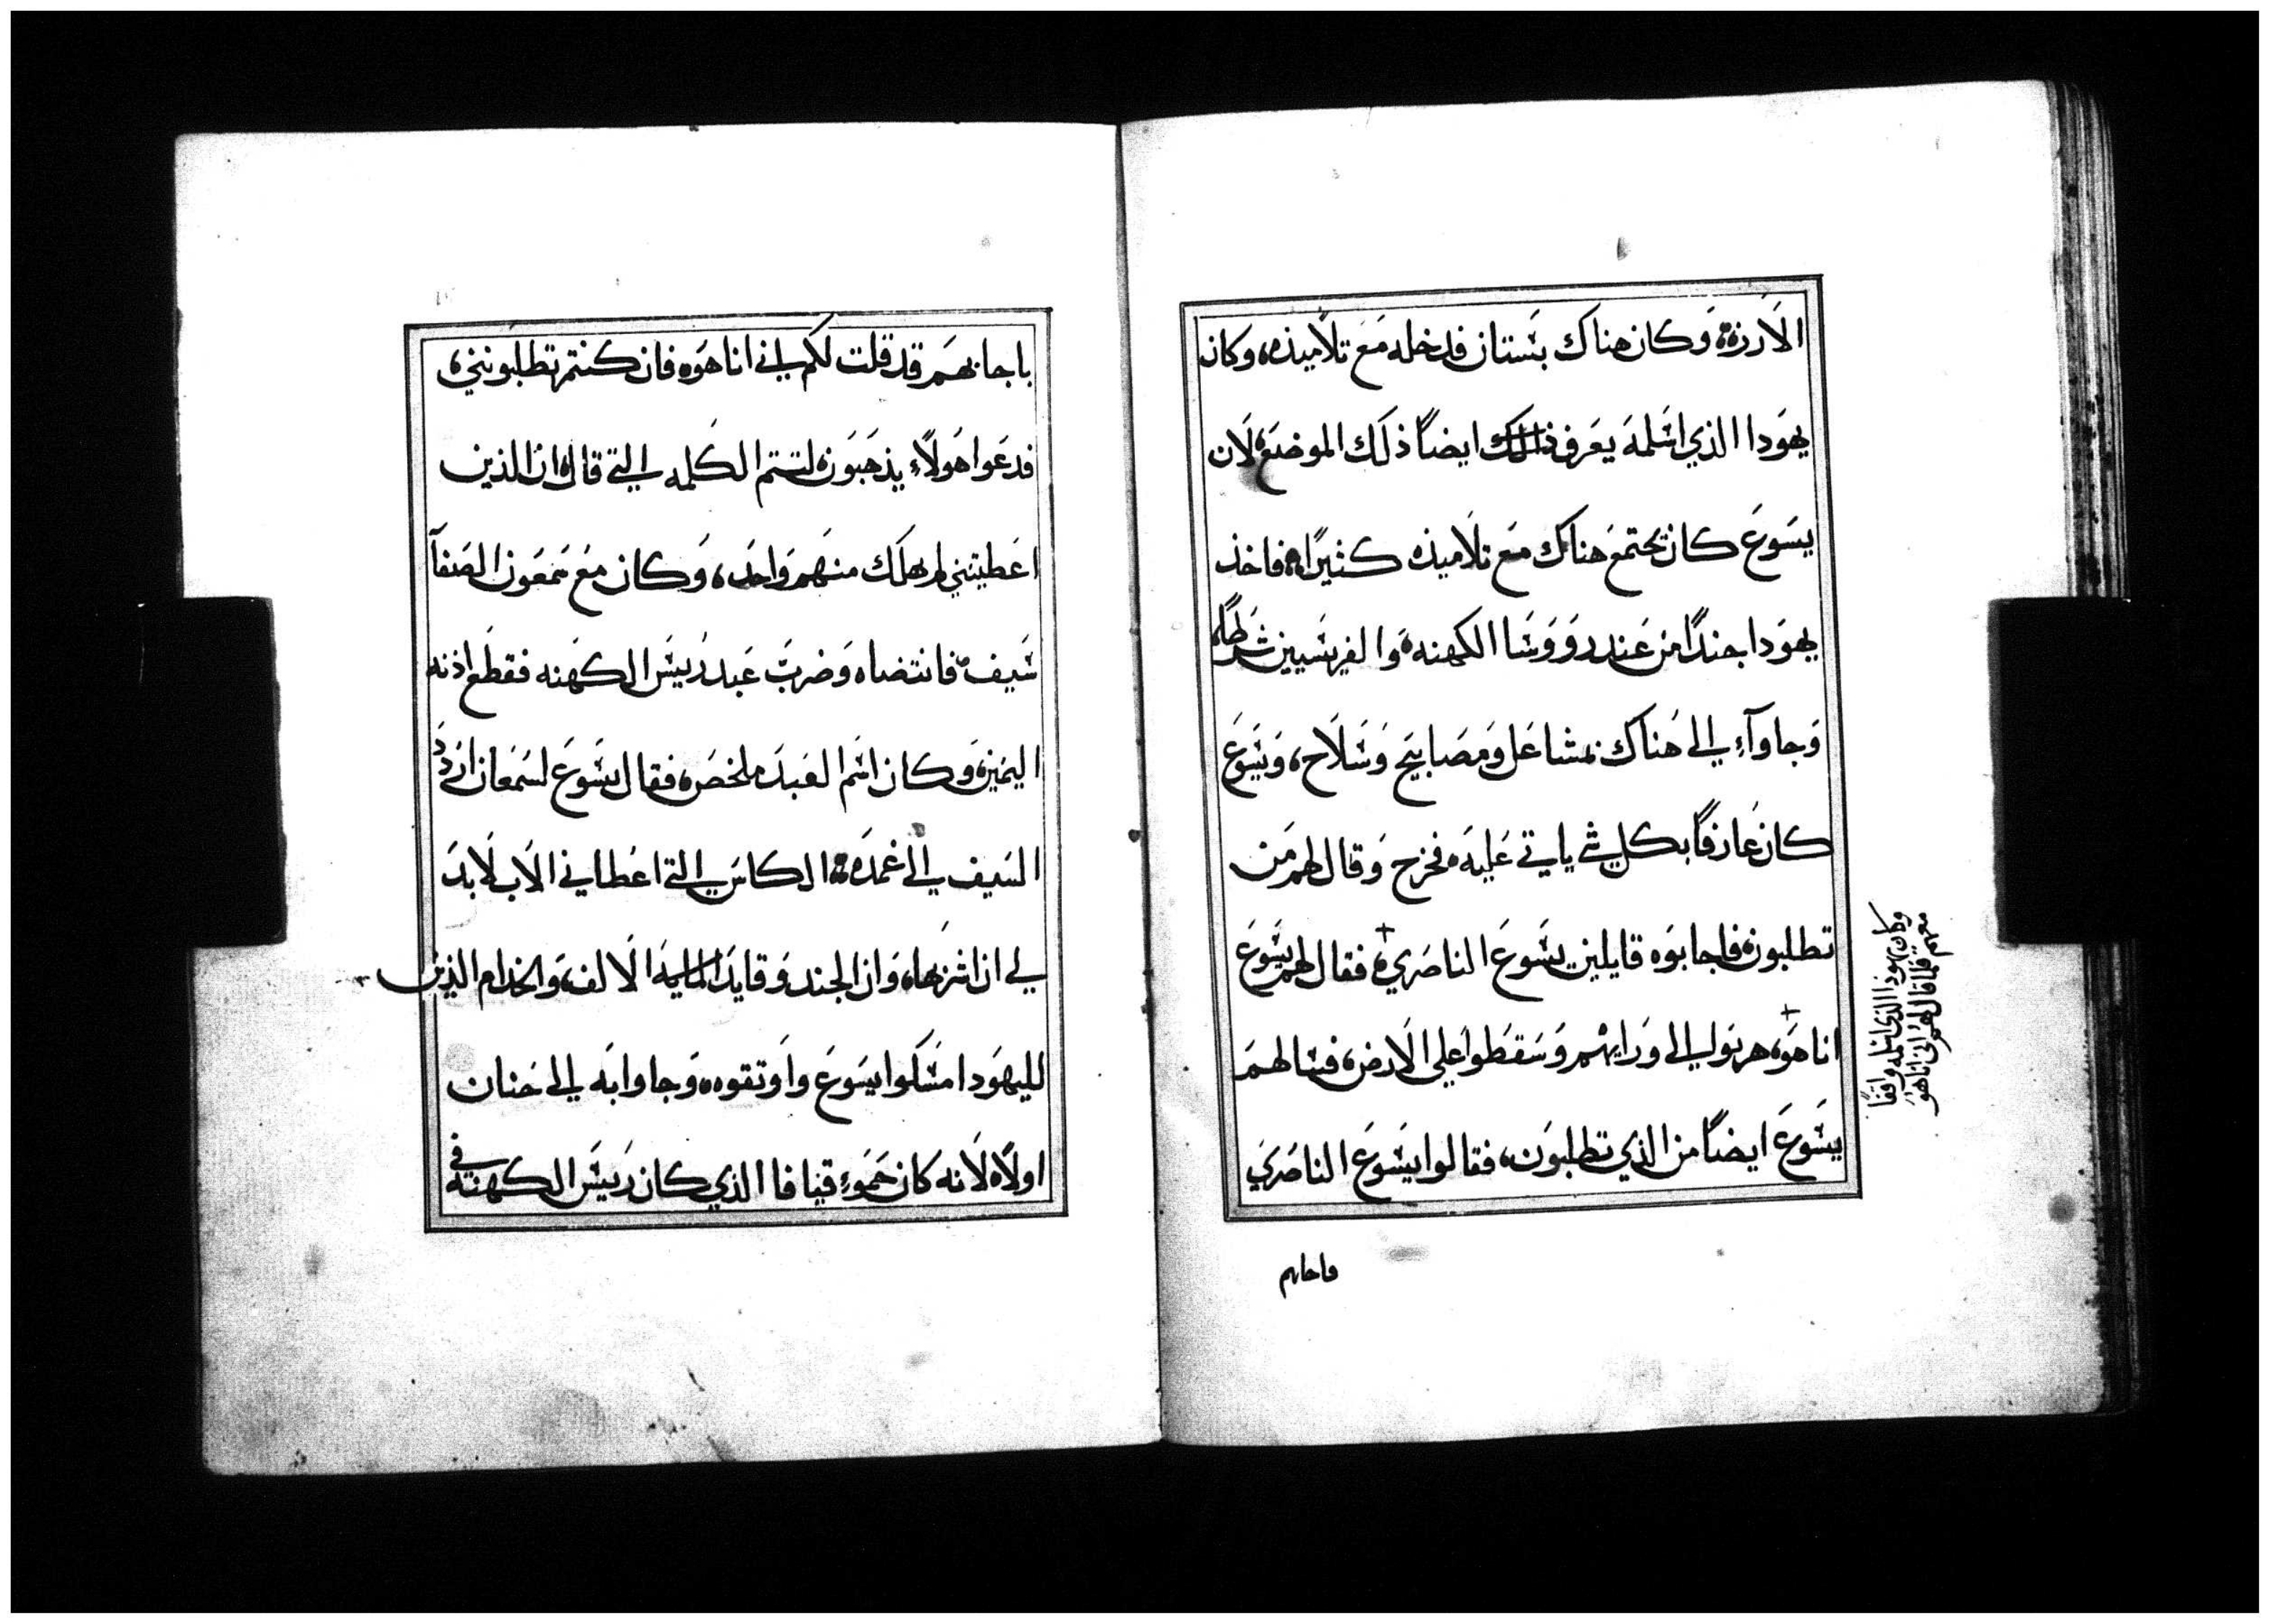 الأرزة، وكان هناك بستان فدخله مع تلاميذه، وكان
يهودا الذي اسلمه يعرف ذلك ايضاً ذلك الموضع، لان
يسوع كان يجتمع هناك مع تلاميذه كثيرًا، فاخذ
يهودا جندًا من عند رووسا الكهنه، والفريسيين شرطًا،
وجاوآء الى هناك بمشاعل ومصابيح وسلاح، ويسوع
كان عارفًا بكل شي ياتي عليه، فخرج وقال لهم من
تطلبون، فاجابوه قايلين يسوع الناصري، فقال لهم يسوع
انا هو، هربوا الى ورايهم وسقطوا علي الارض، فسالهم
يسوع ايضًا من الذي تطلبون، فقالوا يسوع الناصري
وكان يهودا الذي اسلمه واقفًا
معهم فلما قال لهم اني انا هو
فاجابهم
باجابهم قد قلت لكم اني انا هوه فان كنتم تطلبونني،
فدعوا هولآء يذهبون، لتتم الكلمه التي قالها ان الذين
اعطيتني لم يهلك منهم واحد، وكان مع سمعون الصفآ
سيف، فانتضاه وضرب عبد رييس الكهنه فقطع اذنه
اليمين، وكان اسم العبد ملخص، فقال يسوع لسمعان اردد
السيف الى غمده، الكاس التي اعطاني الاب لا بد
لي ان اشربها، وان الجند وقايد المايه الالف، والخدام الذين
لليهود امسكوا يسوع واوتقوه، وجاوا به الى حنان
اولاً، لانه كان حموء قيافا الذي كان رييس الكهنه في